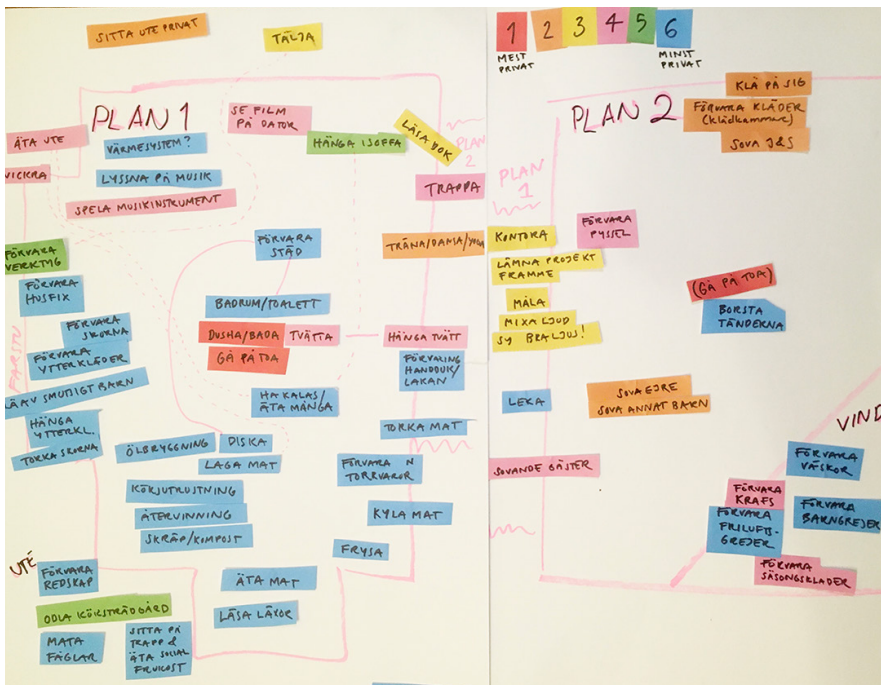 SITTA UTE PRIVAT
TÄLJA
PLAN 1
SE FILM
PÅ DATOR
ÄTA UTE
VÄRMESYSTEM?
HÄNGA I SOFFA
LÄSA BOK
PLAN
2
VICKRA
LYSSNA PÅ MUSIK
TRAPPA
SPELA MUSIKINSTRUMENT
FÖRVARA
VERKTYG
FÖRVARA
STÄD
TRÄNA/DANSA/YOGA
FÖRVARA
HUSFIX
BADRUM/TOALETT
FÖRVARA
SKORNA
DUSHA/BADA
TVÄTTA
HÄNGA TVÄTT
FARSTU
FÖRVARA
YTTERKLÄDER
GÅ PÅ TOA
FÖRVARING
HANDDUK/
LAKAN
KLÄ AV SMUTIGT BARN
HA KALAS/
ÄTA MÅNGA
HÄNGA
YTTERKL.
TORKA MAT
TORKA SKORNA
ÖLBRYGGNING
DISKA
LAGA MAT
FÖRVARA
TORRVAROR
KÖKSUTRUSTNING
ÅTERVINNING
KYLA MAT
SKRÄP/KOMPOST
FRYSA
UTE
FÖRVARA
REDSKAP
ÄTA MAT
ODLA KÖKSTRÄDGÅRD
LÄSA LÄXOR
MATA
FÅGLAR
SITTA PÅ
TRAPP &
ÄTA SOCIAL
FRUKOST
1 2 3 4 5 6
MEST
PRIVAT
MINST
PRIVAT
PLAN 2
KLÄ PÅ SIG
FÖRVARA KLÄDER
(klädkammare)
SOVA J&S
PLAN
1
KONTORA
FÖRVARA
PYSSEL
LÄMNA PROJEKT
FRAMME
MÅLA
MIXA LJUD
SY BRA LJUS!
(GÅ PÅ TOA)
BORSTA
TÄNDERNA
LEKA
SOVA EJRE
SOVA ANNAT BARN
VIND
SOVANDE GÄSTER
FÖRVARA
VÄSKOR
FÖRVARA
KRAFS
FÖRVARA
FRILUFTS-
GREJER
FÖRVARA
BARNGREJER
FÖRVARA
SÄSONGSKLÄDER